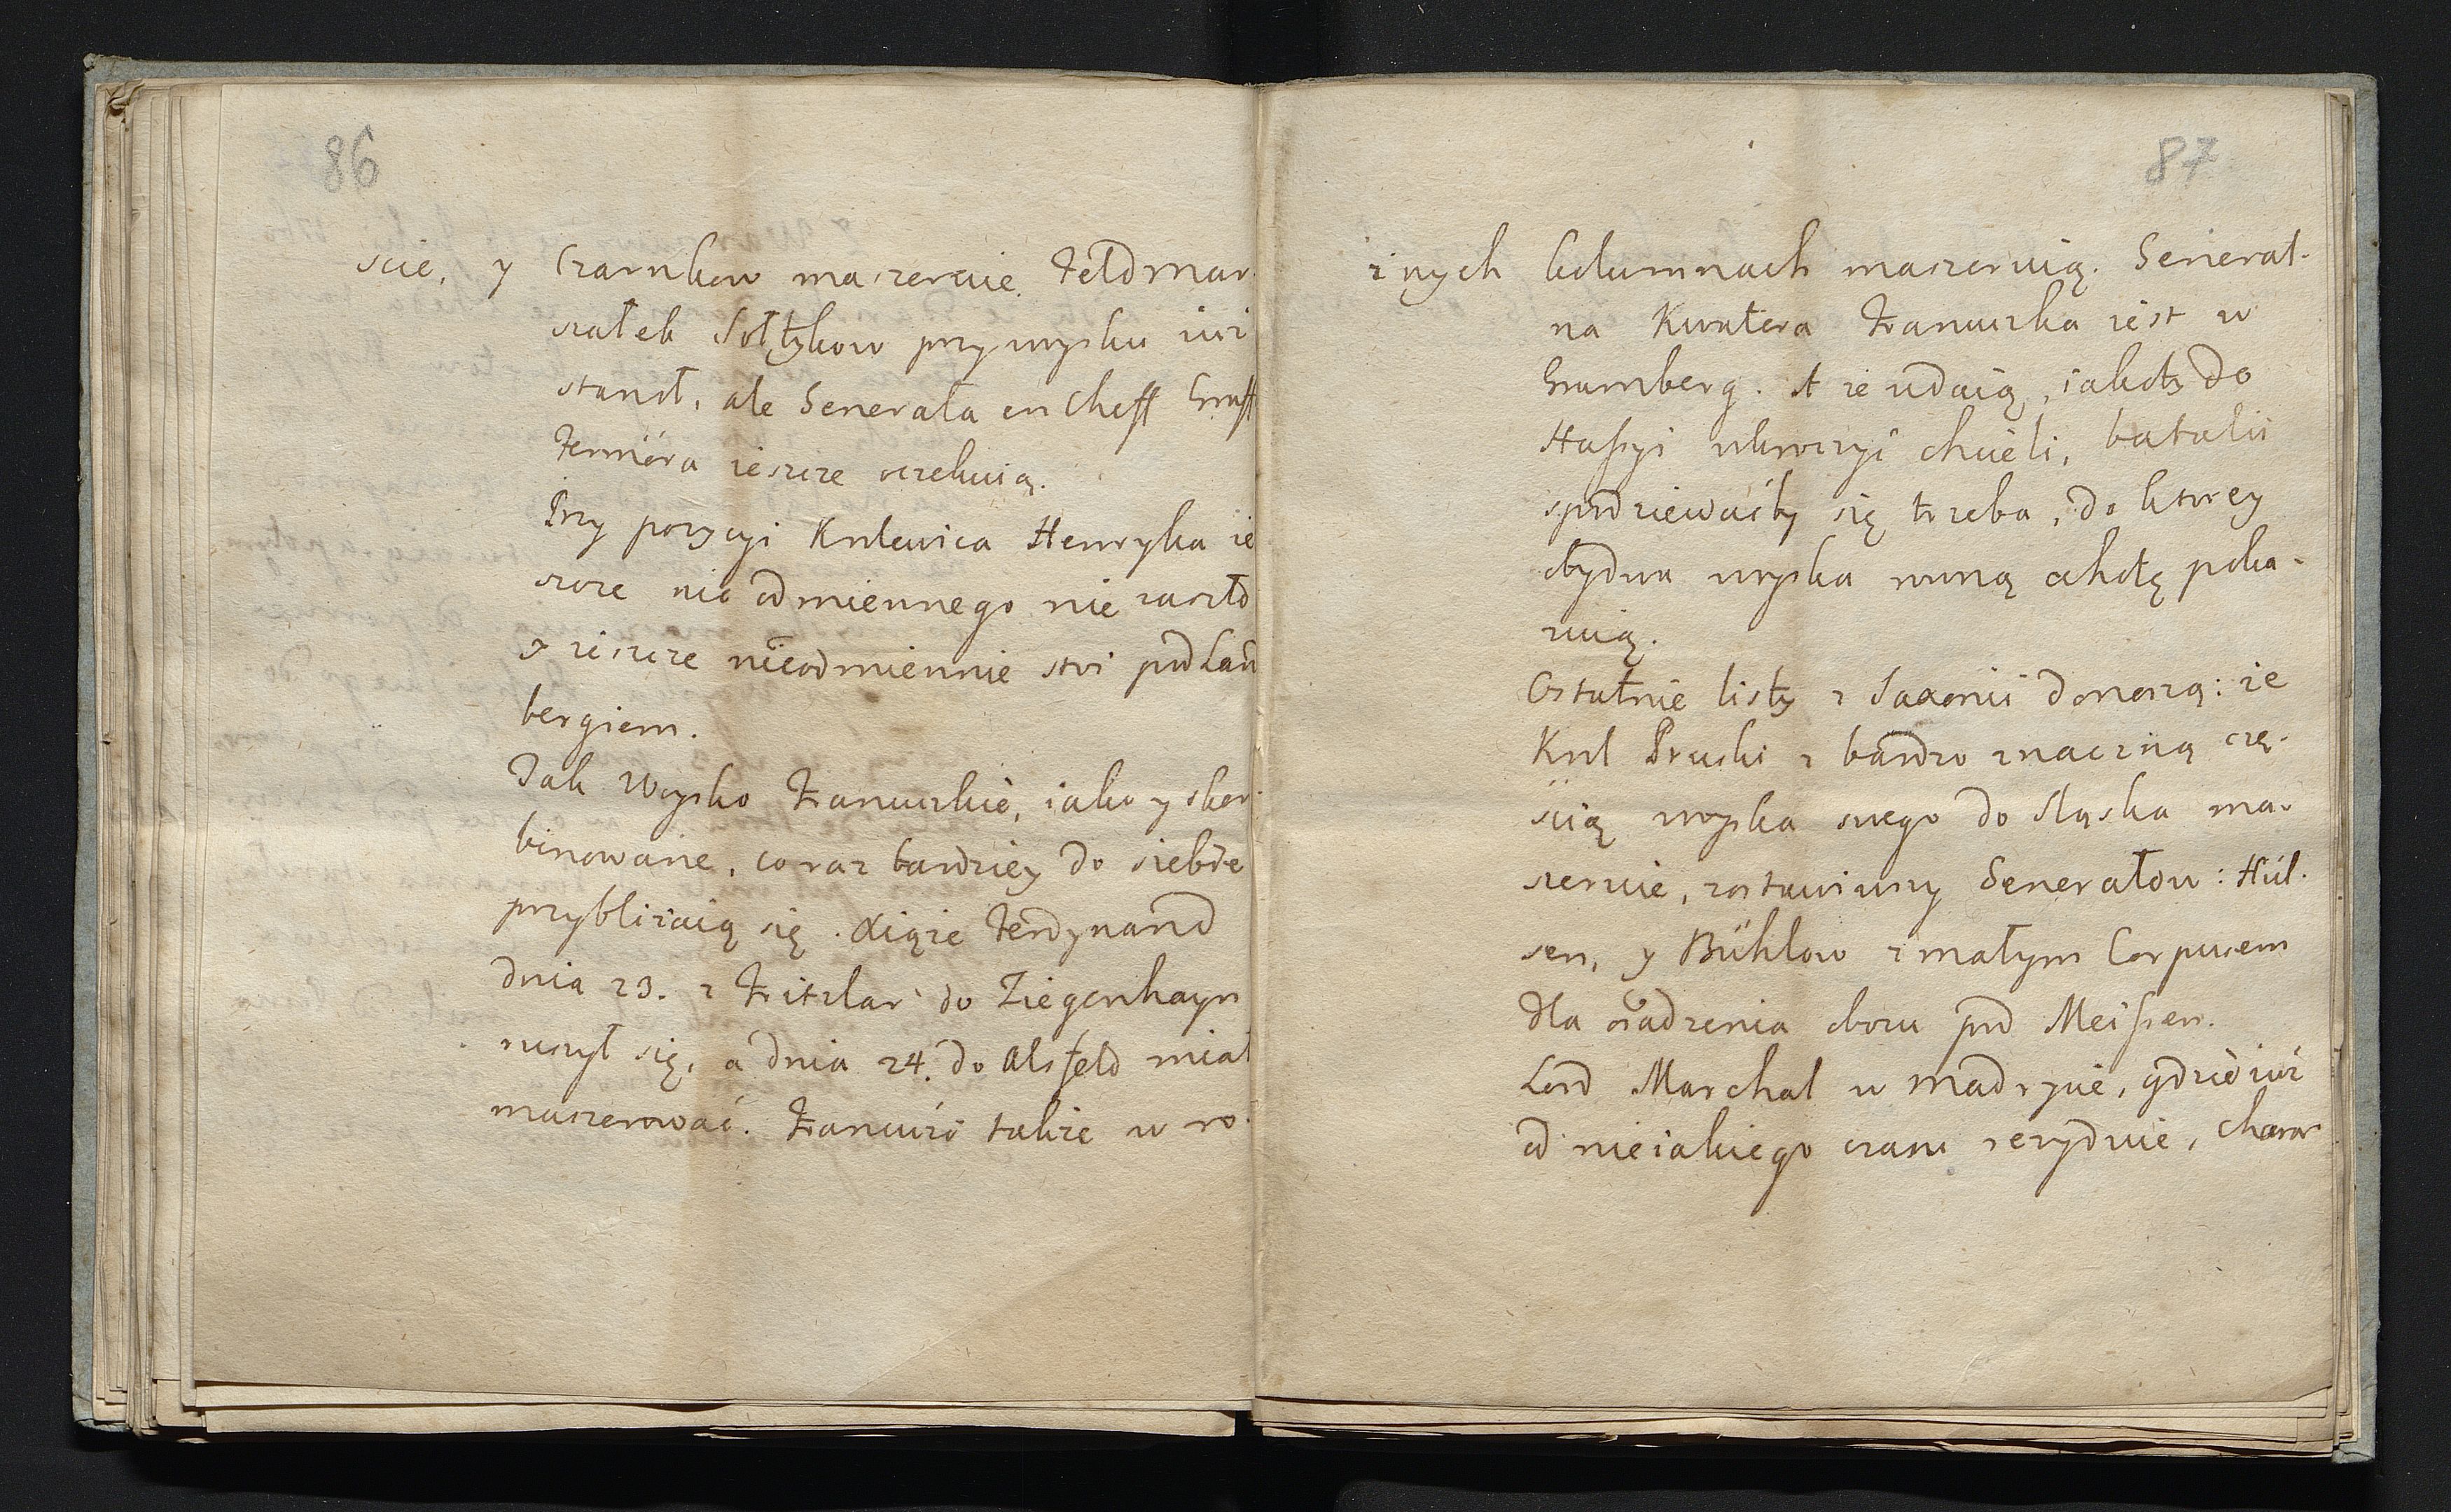 86
scie, y Czarnkow maszeruie. Feldmar
szałek Sołtykow przy woysku iuż
stanoł, ale Generała en Cheff Graff
Fermora ieszcze oczekuią.
Przy pozycyi Krolewica Henryka ie
szcze nic odmiennego nie zaszło
y ieszcze nieodmiennie stoi pod Lan
bergiem.
Jak Woysko Francuzkie, iako y skom
binowane, coraz bardziey do siebie
przybliżaią się. Xiąże Ferdynand
dnia 23. z Fritzlar do Ziegenhayn
ruszył się, a dnia 24. do Alsfeld miał
maszerować. Francuzi także w ro
87
żnych kolumnach maszeruią. General-
na Kwatera Francuzka iest w
Grumberg. A że udaią, iakoby do
Hassyi wkroczyć chcieli, batalii
spodziewaćby się trzeba, do ktorey
obydwa woyska rowną ochotę poka-
zuią.
Ostatnie listy z Saxonii donoszą: że
Krol Pruski z bardzo znaczną czę-
ścią woyska swego do Sląska ma-
szeruie, zostawiwszy Generałow: Hül-
sen, y Bühlow z małym Corpusem
dla osadzenia obozu pod Meissen.
Lord Marchal w Madrycie, gdzie iuż
od nieiakiego czasu rezyduie, charak